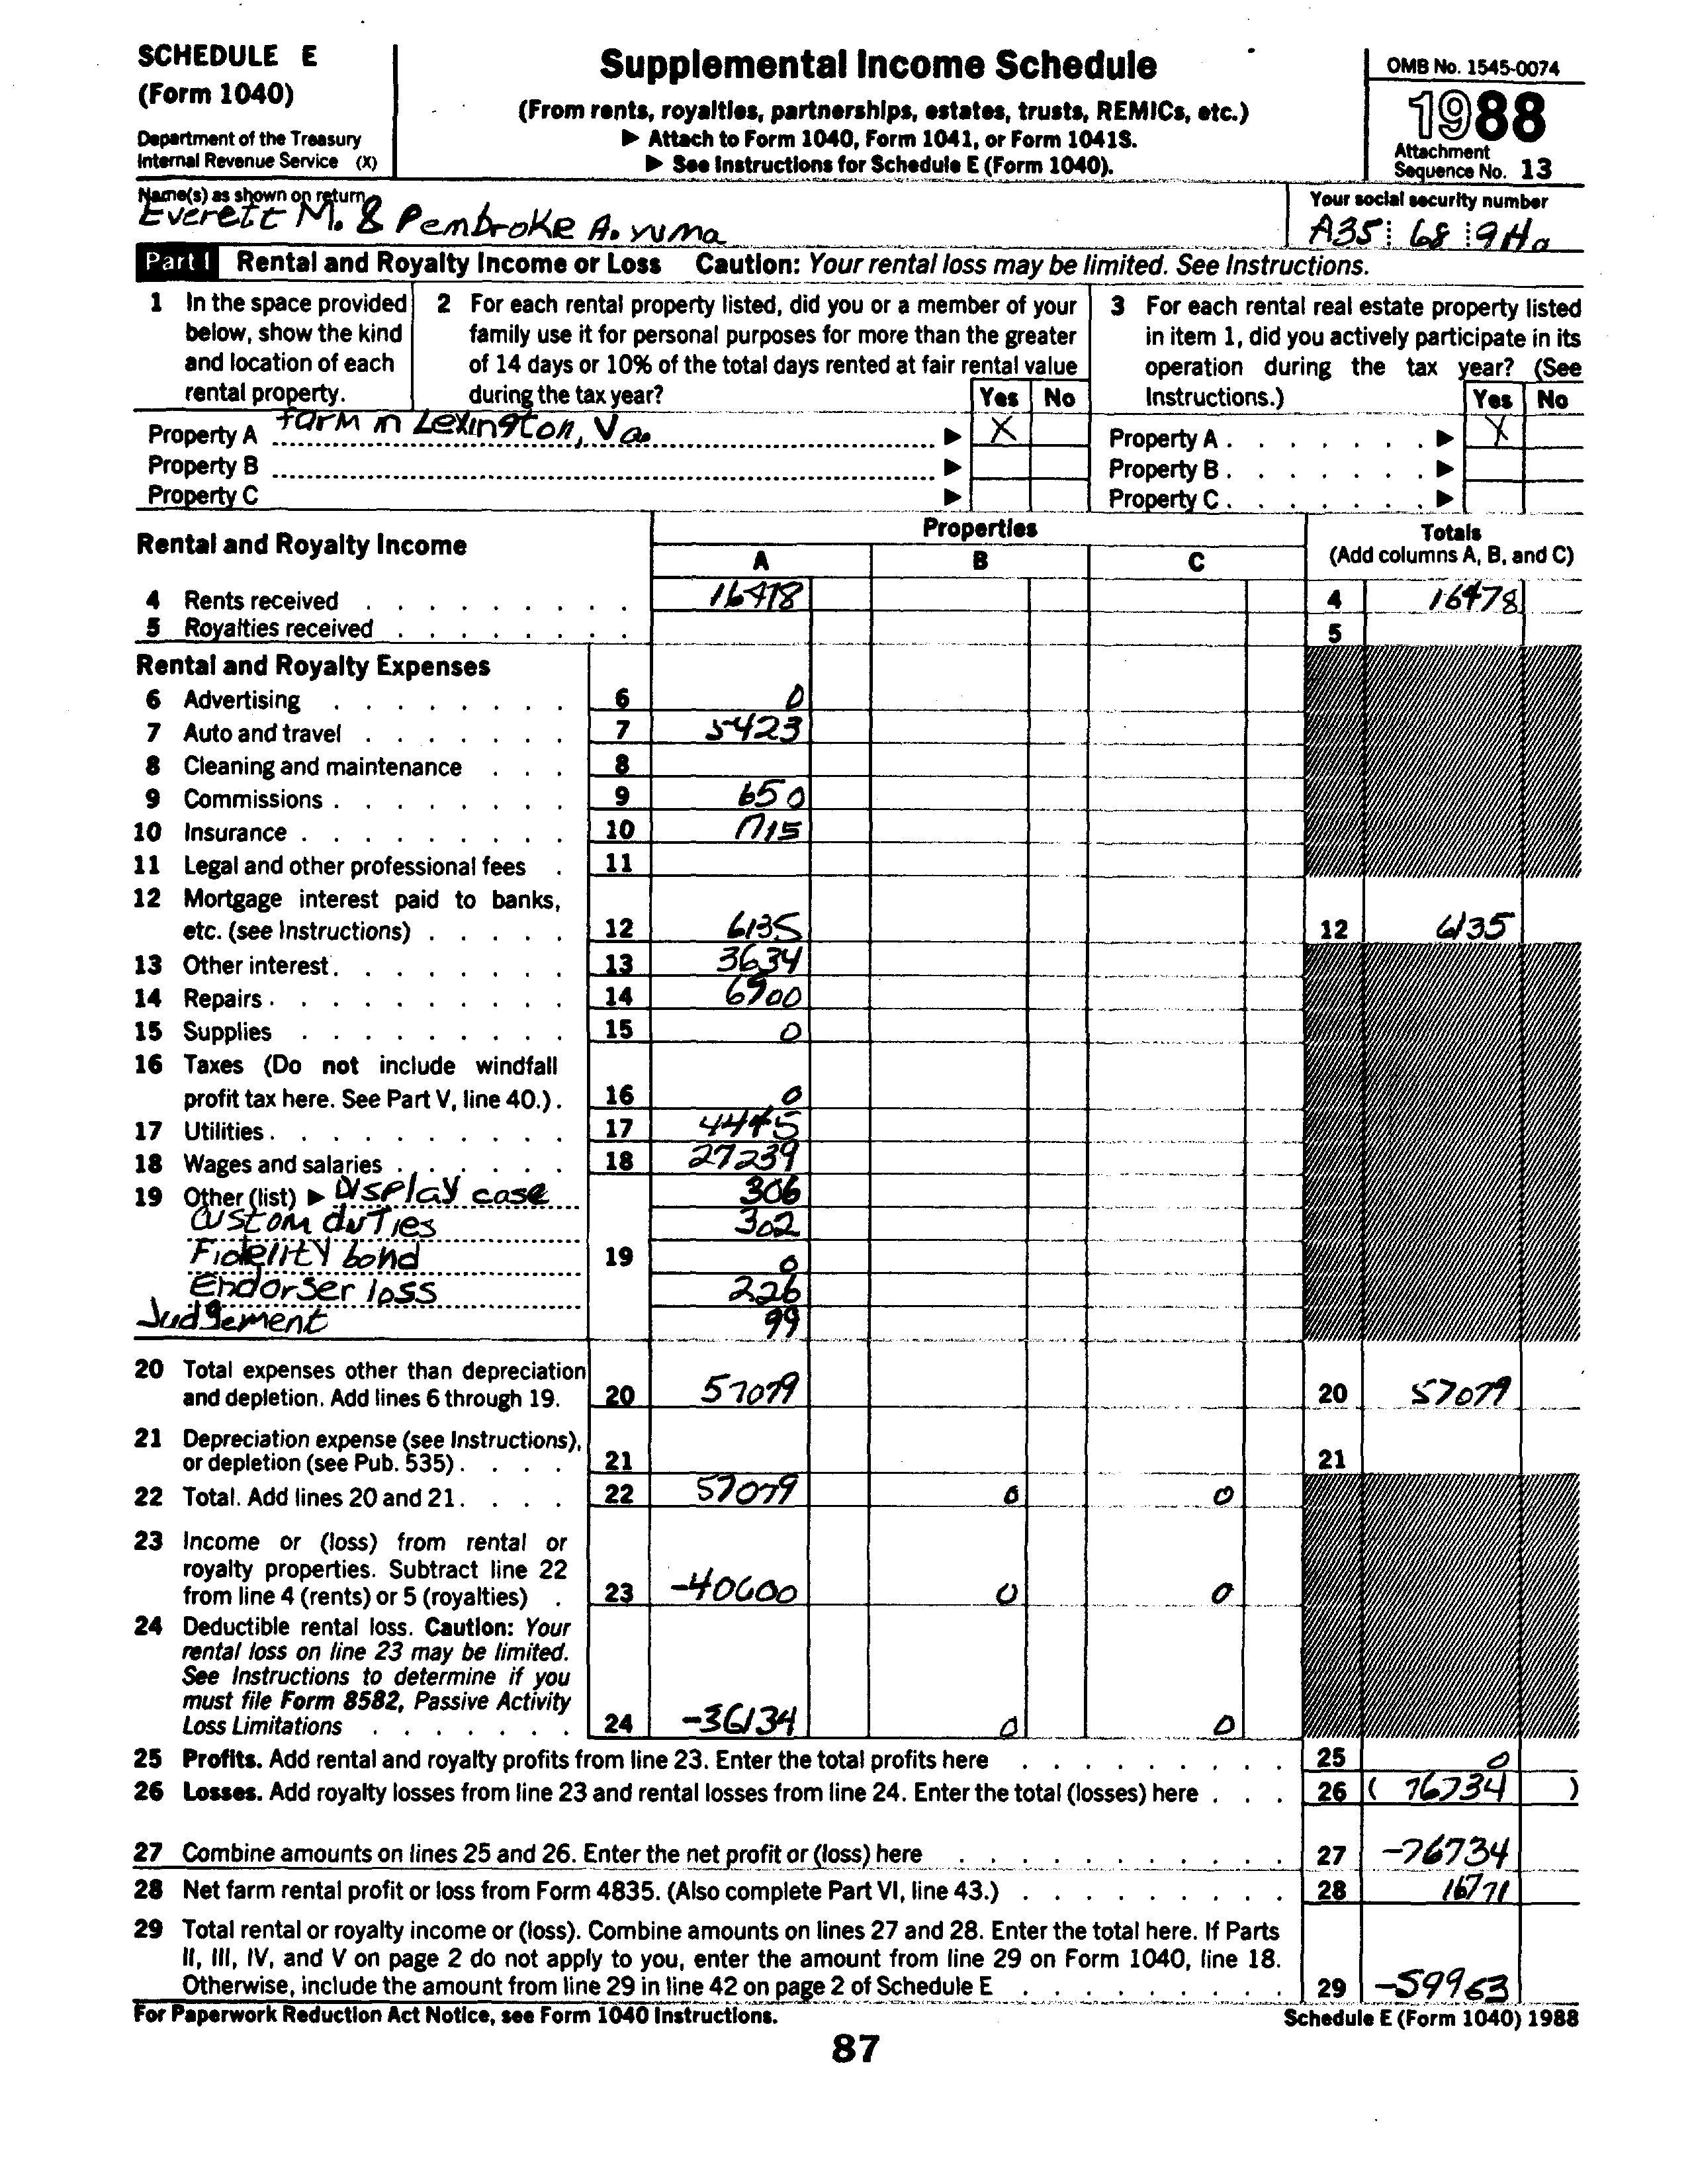 SCHEDULE E
(Form 1040)
Department of the Treasury
Internal Revenue Service (X)
Supplemental Income Schedule
(From rents, royalties, partnerships, estates, trusts, REMICs, etc.)
▶ Attach to Form 1040, Form 1041, or Form 1041S.
▶ See Instructions for Schedule E (Form 1040).
OMB No. 1545-0074
1988
Attachment
Sequence No. 13
Name(s) as shown on return
Everett M. & Pembroke A. Yuma
Your social security number
A35 68 9Ha
Part I Rental and Royalty Income or Loss Caution: Your rental loss may be limited. See Instructions.
1 In the space provided below, show the kind and location of each rental property.
2 For each rental property listed, did you or a member of your family use it for personal purposes for more than the greater of 14 days or 10% of the total days rented at fair rental value during the tax year?
Yes No
3 For each rental real estate property listed in item 1, did you actively participate in its operation during the tax year? (See Instructions.)
Yes No
Property A farm n Lexington, Va. ▶ X Property A . . . . . . . ▶ X
Property B ▶ Property B . . . . . . . ▶
Property C ▶ Property C . . . . . . . ▶
Rental and Royalty Income
Properties
A B C
Totals
(Add columns A, B, and C)
4 Rents received . . . . . . . . . 16478 4 16478
5 Royalties received . . . . . . . . 5
Rental and Royalty Expenses
6 Advertising . . . . . . . . 6 0
7 Auto and travel . . . . . . . 7 5423
8 Cleaning and maintenance . . . 8
9 Commissions . . . . . . . . 9 650
10 Insurance . . . . . . . . . 10 1715
11 Legal and other professional fees . 11
12 Mortgage interest paid to banks,
etc. (see Instructions) . . . . . 12 6135 12 6135
13 Other interest . . . . . . . . 13 3634
14 Repairs . . . . . . . . . . 14 6900
15 Supplies . . . . . . . . . 15 0
16 Taxes (Do not include windfall
profit tax here. See Part V, line 40.) . 16 0
17 Utilities . . . . . . . . . . 17 4445
18 Wages and salaries . . . . . . 18 27239
19 Other (list) ▶ Display case 306
Custom duTies 302
Fidelity bond 19 0
Endorser loss 226
Judgement 99
20 Total expenses other than depreciation
and depletion. Add lines 6 through 19. 20 57079 20 57079
21 Depreciation expense (see Instructions),
or depletion (see Pub. 535) . . . . 21 21
22 Total. Add lines 20 and 21 . . . . 22 57079 0 0
23 Income or (loss) from rental or
royalty properties. Subtract line 22
from line 4 (rents) or 5 (royalties) . 23 -40600 0 0
24 Deductible rental loss. Caution: Your
rental loss on line 23 may be limited.
See Instructions to determine if you
must file Form 8582, Passive Activity
Loss Limitations . . . . . . . 24 -36134 0 0
25 Profits. Add rental and royalty profits from line 23. Enter the total profits here . . . . . . . . . 25 0
26 Losses. Add royalty losses from line 23 and rental losses from line 24. Enter the total (losses) here . . . 26 ( 76734 )
27 Combine amounts on lines 25 and 26. Enter the net profit or (loss) here . . . . . . . . . . . 27 -76734
28 Net farm rental profit or loss from Form 4835. (Also complete Part VI, line 43.) . . . . . . . . . 28 16771
29 Total rental or royalty income or (loss). Combine amounts on lines 27 and 28. Enter the total here. If Parts
II, III, IV, and V on page 2 do not apply to you, enter the amount from line 29 on Form 1040, line 18.
Otherwise, include the amount from line 29 in line 42 on page 2 of Schedule E . . . . . . . . . 29 -59963
For Paperwork Reduction Act Notice, see Form 1040 Instructions. Schedule E (Form 1040) 1988
87